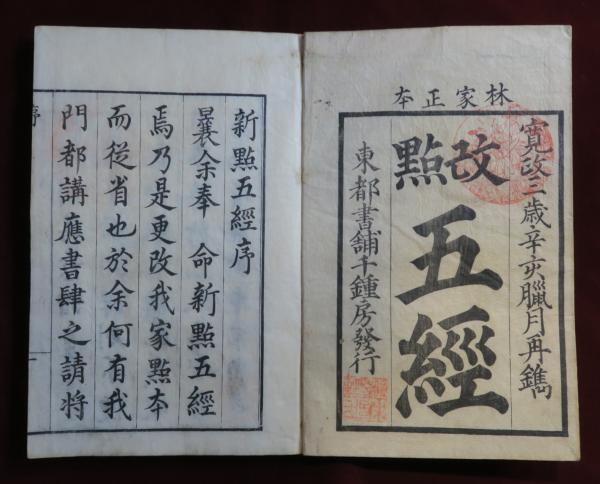 林家正本
寛政三歳辛亥臘月再鐫
改點
五經
東都書舗千鍾房發行
新點五經序
曩余奉 命新點五經
焉乃是更改我家點本
而從省也於余何有我
門都講應書肆之請將
序